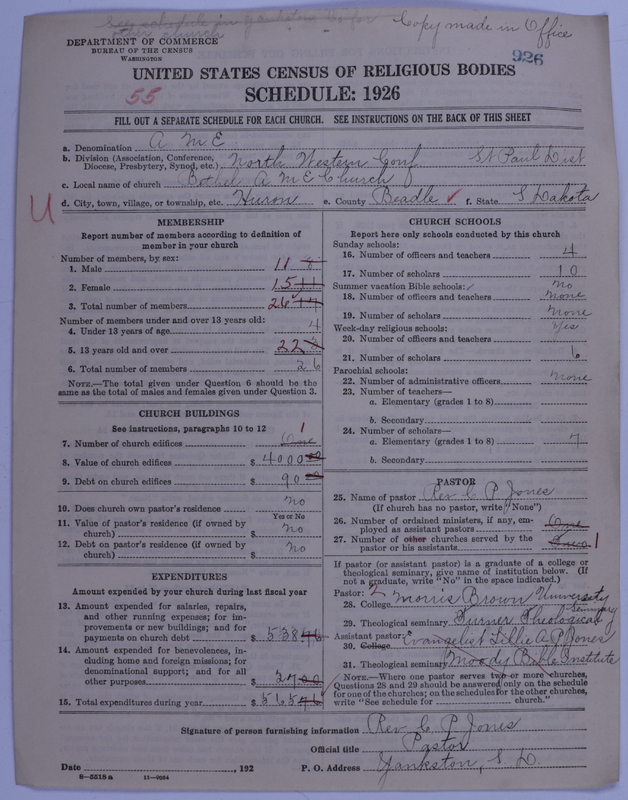 See schedule in Yankston Co for
other church
Copy made in Office
DEPARTMENT OF COMMERCE
BUREAU OF THE CENSUS
WASHINGTON
926
UNITED STATES CENSUS OF RELIGIOUS BODIES
55
SCHEDULE: 1926
FILL OUT A SEPARATE SCHEDULE FOR EACH CHURCH. SEE INSTRUCTIONS ON THE BACK OF THIS SHEET
a. Denomination A M E
b. Division (Association, Conference, Diocese, Presbytery, Synod, etc.) North Western Conf. St Paul Dist
c. Local name of church Bethel A M E Church
U
d. City, town, village, or township, etc. Huron e. County Beadle ✓ f. State S Dakota
MEMBERSHIP
Report number of members according to definition of
member in your church
Number of members, by sex:
1. Male 11
2. Female 15 11
3. Total number of members 26 14
Number of members under and over 13 years old:
4. Under 13 years of age 4
5. 13 years old and over 22
6. Total number of members 26
NOTE.—The total given under Question 6 should be the
same as the total of males and females given under Question 3.
CHURCH BUILDINGS
See instructions, paragraphs 10 to 12
1
7. Number of church edifices One
8. Value of church edifices $ 4000 00
9. Debt on church edifices $ 90 00
10. Does church own pastor's residence? no
Yes or No
11. Value of pastor's residence (if owned by
church) $ No
12. Debt on pastor's residence (if owned by
church) $ No
EXPENDITURES
Amount expended by your church during last fiscal year
13. Amount expended for salaries, repairs,
and other running expenses; for im-
provements or new buildings; and for
payments on church debt $ 538 46
14. Amount expended for benevolences, in-
cluding home and foreign missions; for
denominational support; and for all
other purposes $ 27 00
15. Total expenditures during year $ 565 46
CHURCH SCHOOLS
Report here only schools conducted by this church
Sunday schools:
16. Number of officers and teachers 4
17. Number of scholars 10
Summer vacation Bible schools: no
18. Number of officers and teachers none
19. Number of scholars none
Week-day religious schools: yes
20. Number of officers and teachers
21. Number of scholars 6
Parochial schools:
22. Number of administrative officers none
23. Number of teachers—
a. Elementary (grades 1 to 8)
b. Secondary
24. Number of scholars—
a. Elementary (grades 1 to 8) 7
b. Secondary
PASTOR
25. Name of pastor Rev C P Jones
(If church has no pastor, write "None")
26. Number of ordained ministers, if any, em-
ployed as assistant pastors One
27. Number of other churches served by the
pastor or his assistants Two 1
If pastor (or assistant pastor) is a graduate of a college or
theological seminary, give name of institution below. (If
not a graduate, write "No" in the space indicated.)
Pastor: 2
28. College Morris Brown University
29. Theological seminary Turner Theological Seminary
Assistant pastor: Evangelist Lillie A P Jones
30. College
31. Theological seminary Moody Bible Institute
NOTE.—Where one pastor serves two or more churches,
Questions 28 and 29 should be answered only on the schedule
for one of the churches; on the schedules for the other churches,
write "See schedule for church."
Signature of person furnishing information Rev. C P Jones
Official title Pastor
Date , 192 P. O. Address Yankston, S. D.
8-5518a 11-9054